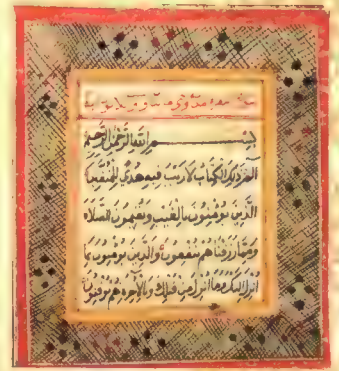 بسم الله الرحمن الرحيم
الم ذلك الكتاب لا ريب فيه هدى للمتقين
الذين يؤمنون بالغيب ويقيمون الصلاة
ومما رزقناهم ينفقون والذين يؤمنون بما
انزل اليك وما انزل من قبلك وبالآخرة هم يوقنون